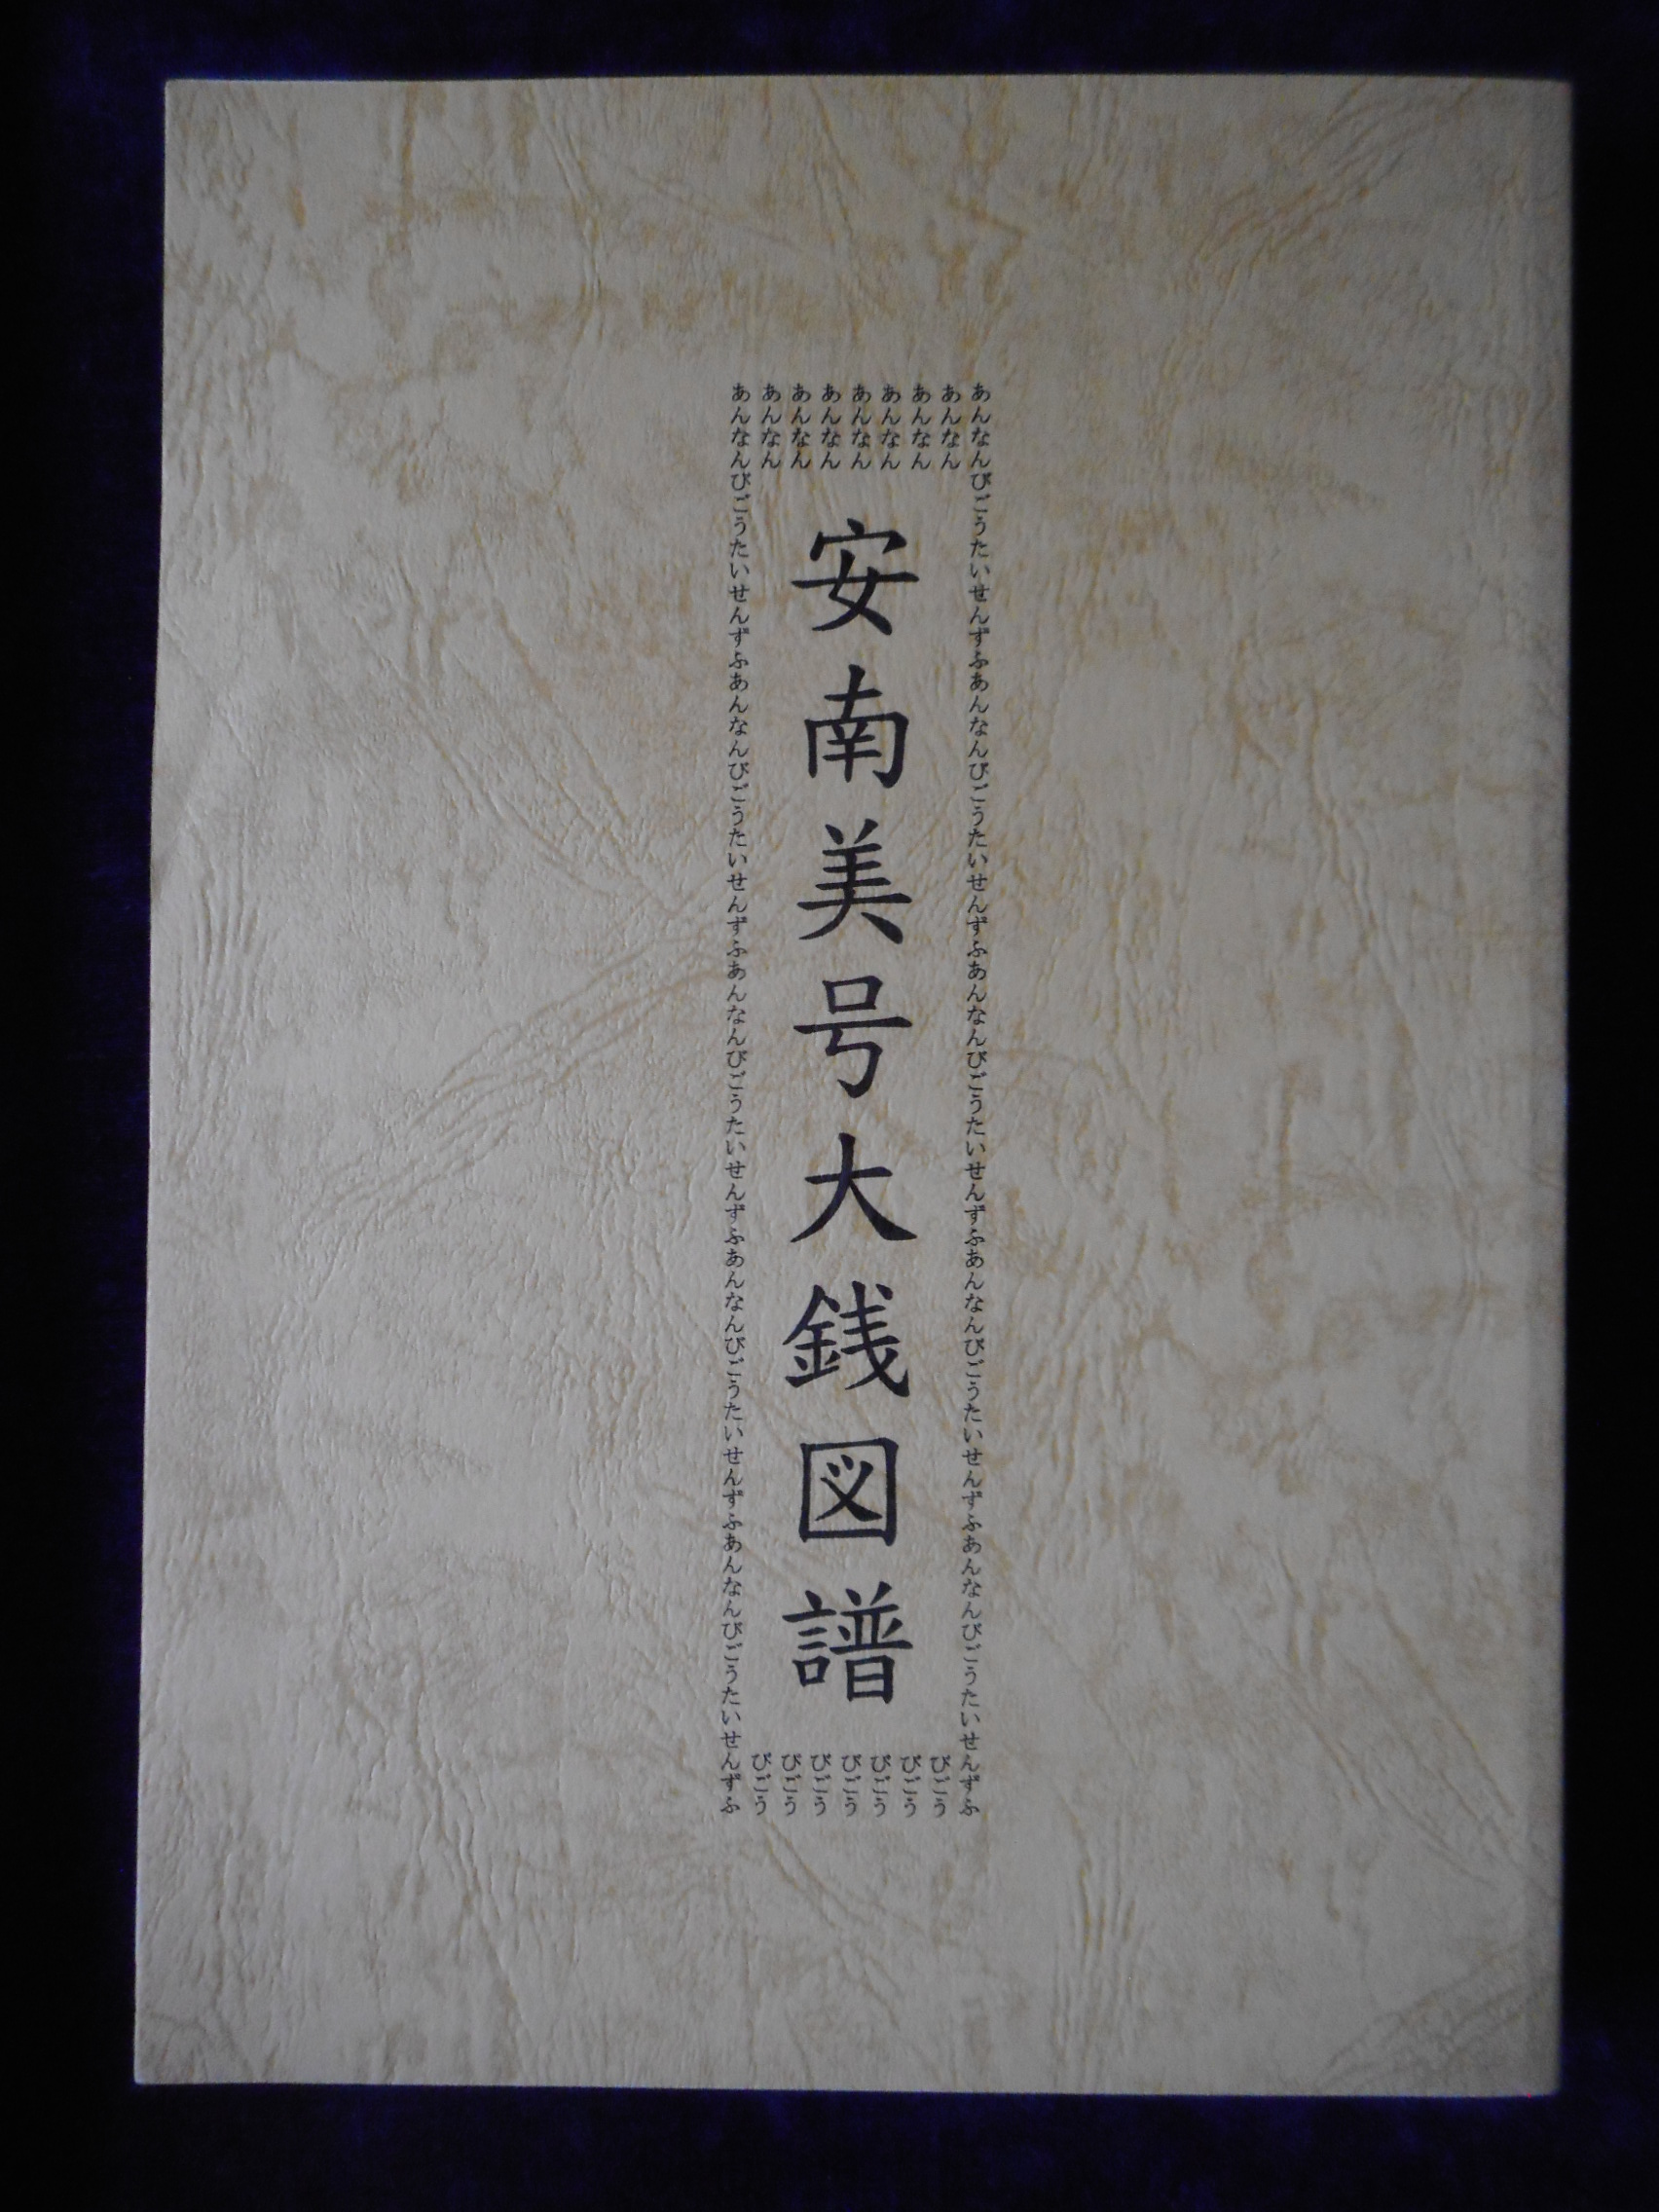 あんなんびごうたいせんずふあんなんびごうたいせんずふあんなんびごうたいせんずふあんなんびごうたいせんずふあんなんびごうたいせんずふ
あんなん
あんなん
あんなん
あんなん
あんなん
あんなん
あんなん
安南美号大銭図譜
びごう
びごう
びごう
びごう
びごう
びごう
びごう
あんなんびごうたいせんずふあんなんびごうたいせんずふあんなんびごうたいせんずふあんなんびごうたいせんずふあんなんびごうたいせんずふ